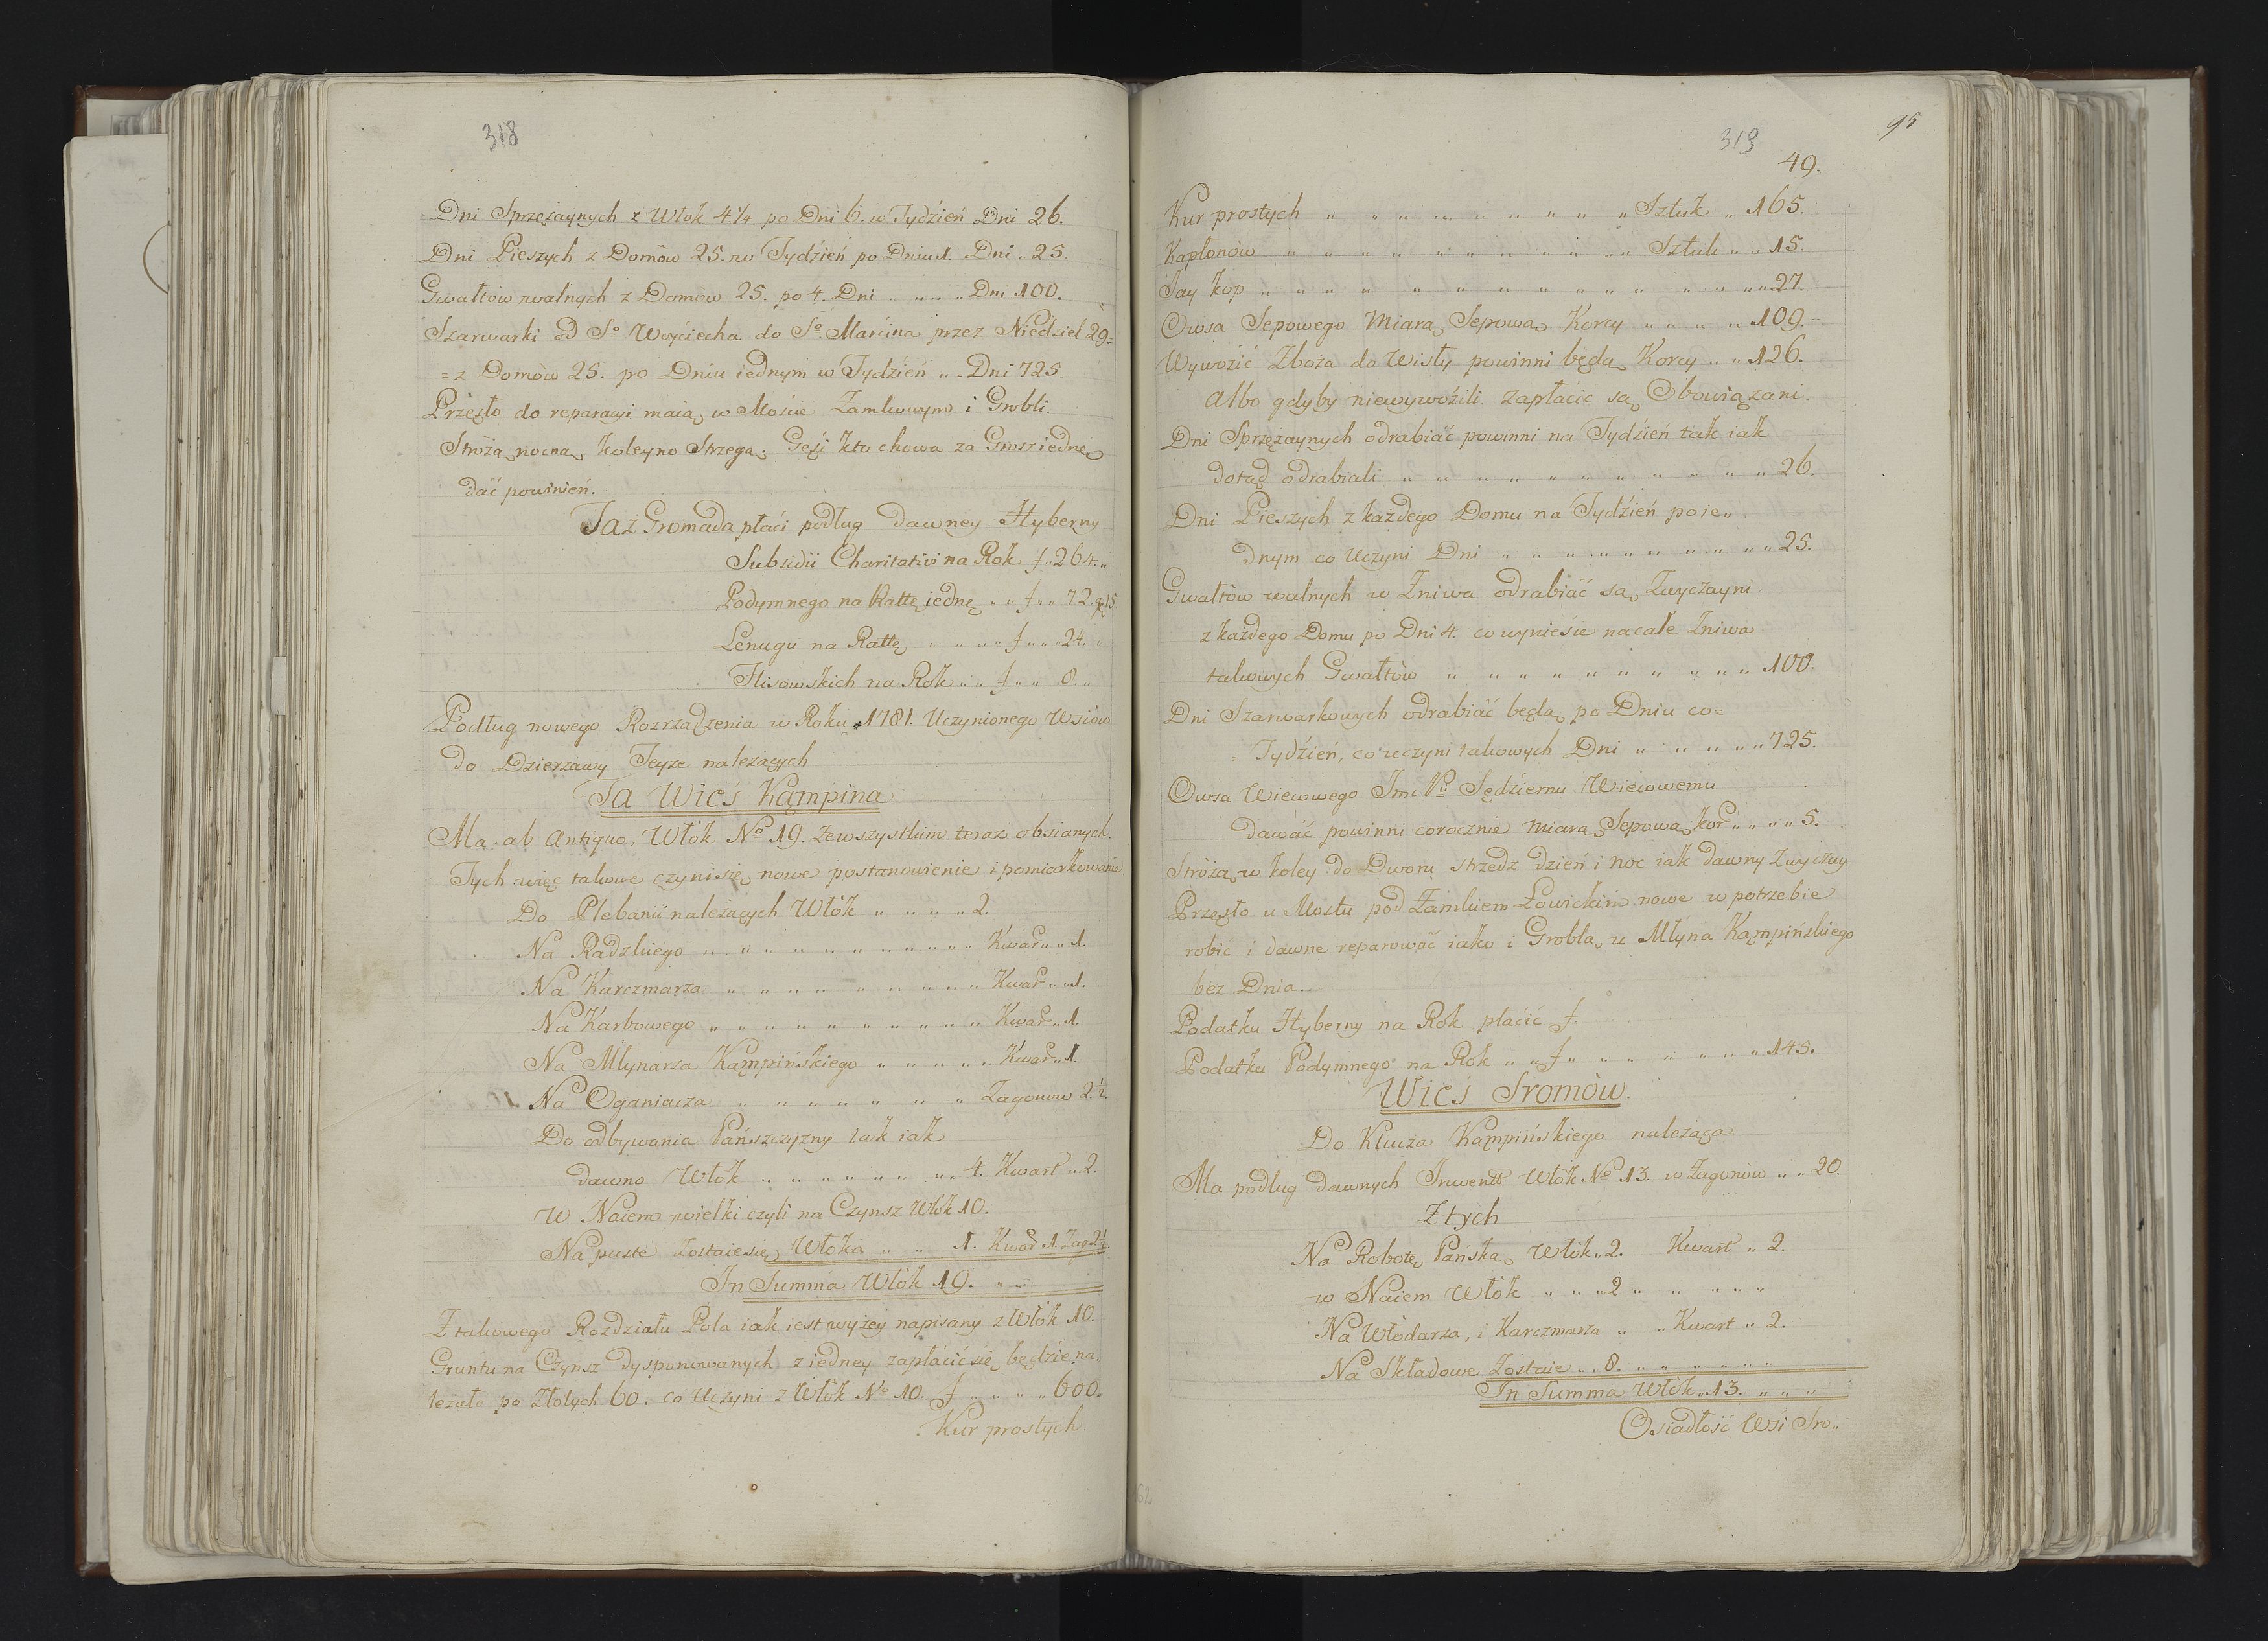 318
Dni Sprzężaynych z Włok 4¼ po Dni 6. w Tydźień Dni 26.
Dni Pieszych z Domów 25. w Tydźień po Dniu 1. Dni „ 25.
Gwałtow walnych z Domow 25. po 4. Dni „ „ „ „ Dni 100.
Szarwarki od So Woyciecha do So Marcina przez Niedziel 29.=
= z Domów 25. po Dniu iednym w Tydźień „ „ Dni 725.
Przęsło do reparacyi maią w Mośćie Zamkowym i Grobli.
Stróżą nocną koleyno Strzegą. Gęśi kto chowa za Grosz iednę
dać powinień.
Taż Gromada płaći podług dawney Hyberny
Subsidii Charitativi na Rok f „ 264. „
Podymnego na Rattę iednę „ „ f „ „ 72. g. 15.
Lenugu na Rattę „ „ „ „ f „ „ „ 24. „
Flisowskich na Rok „ „ f „ „ 8. „
Podług nowego Rozrządzenia w Roku 1781. Uczynionego Wsiów
do Dzierzawy Teyze nalezących
Ta Wieś Kąmpina
Ma ab Antiquo, Włók No 19. zewszystkim teraz obsianych.
Tych więc takowe czyni się nowe postanowienie i pomiarkowanie.
Do Plebanii należących Włók „ „ „ „ 2.
Na Radzkiego „ „ „ „ „ „ „ „ „ „ Kwar „ „ 1.
Na Karczmarza „ „ „ „ „ „ „ „ „ Kwar „ „ 1.
Na Karbowego „ „ „ „ „ „ „ „ „ „ Kwar „ 1.
Na Młynarza Kąmpińskiego „ „ „ „ „ Kwar „ 1.
Na Oganiacza „ „ „ „ „ „ „ „ Zagonow 2½.
Do odbywania Pańszczyzny tak iak
dawno Włok „ „ „ „ „ „ „ 4. Kwart „ 2.
W Naiem wielki czyli na Czynsz Włók 10.
Na puste zostaie się Włoka „ „ 1. Kwar 1. Zag 2½.
In Summa Włók 19. „ „
Z takowego Rozdziału Pola iak iest wyżey napisany z Włók 10.
Gruntu na Czynsz dysponowanych z iedney zapłaćić się będźie na,
leżało po Złotych 60. co Uczyni z Włók No 10. f „ „ „ „ 600.
Kur prostych.
95
319
49.
Kur prostych „ „ „ „ „ „ „ „ „ Sztuk „ 165.
Kapłonów „ „ „ „ „ „ „ „ „ „ „ Sztuk „ „ 15.
Jay kop „ „ „ „ „ „ „ „ „ „ „ „ „ „ 27.
Owsa Sepowego Miarą Sepową Korcy „ „ „ „ 109.
Wywoźić Zboża do Wisły powinni będą Korcy „ „ 126.
Albo gdyby niewywoźili zapłaćic są Obowiązani.
Dni Sprzężaynych odrabiáć powinni na Tydźień tak iak
dotąd odrabiali „ „ „ „ „ „ „ „ „ „ „ „ 26.
Dni Pieszych z każdego Domu na Tydźień po ie„
dnym co Uczyni Dni „ „ „ „ „ „ „ „ „ „ 25.
Gwałtów walnych w Żniwa odrabiáć są Zwyczayni
z każdego Domu po Dni 4. co wynieśie na całe Żniwa
takowych Gwałtów „ „ „ „ „ „ „ „ „ „ 100.
Dni Szarwarkowych odrabiáć będą po Dniu co=
Tydźień, co uczyni takowych Dni „ „ „ „ „ 725.
Owsa Wiecowego Jmc Pu Sędźiemu Wiecowemu
dawáć powinni corocznie miarą Sepową kor „ „ „ „ 5.
Stróżą w koley do Dworu strzedz dzień i noc iak dawny Zwyczay
Przęsło u Mostu pod Zamkiem Łowickim nowe w potrzebie
robić i dawne reparować iako i Groblą u Młyna Kąmpińskiego
bez Dnia.
Podatku Hyberny na Rok płaćić f.
Podatku Podymnego na Rok „ „ f „ „ „ „ „ „ „ 145.
Wieś Sromów.
Do Klucza Kąmpińskiego należąca.
Ma podług dawnych Inwentt Włók No 13. w Zagonów „ „ 20.
Z tych
Na Robotę Pańską Włók „ 2. Kwart „ 2.
w Naiem Włók „ „ „ 2 „ „ „ „ „
Na Włódarza, i Karczmarza „ „ Kwart „ 2.
Na Składowe Zostaie „ „ 8. „ „ „ „ „ „
In Summa Włók „ 13. „ „ „
Osiadłość Wsi Sro„